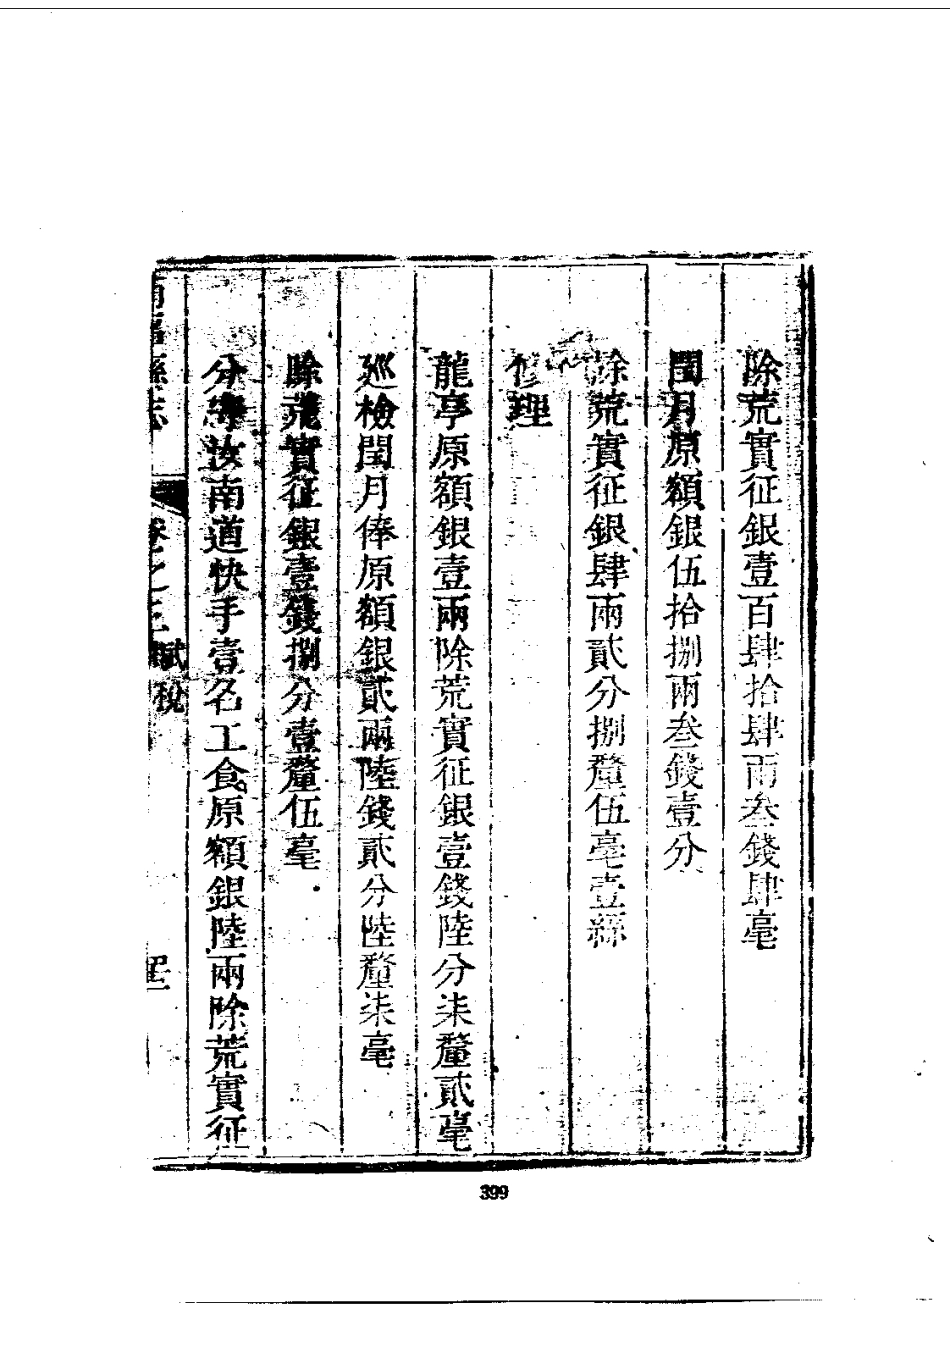 除荒實征銀壹百肆拾肆兩叁錢肆毫
閏月原額銀伍拾捌兩叁錢壹分
除荒實征銀肆兩貳分捌釐伍毫壹絲
修理
龍亭原額銀壹兩除荒實征銀壹錢陸分柒釐貳毫
廵檢閏月俸原額銀貳兩陸錢貳分陸釐柒毫
除荒實征銀壹錢捌分壹釐伍毫
分守汝南道快手壹名工食原額銀陸兩除荒實征
縣志
卷之三 賦稅
399